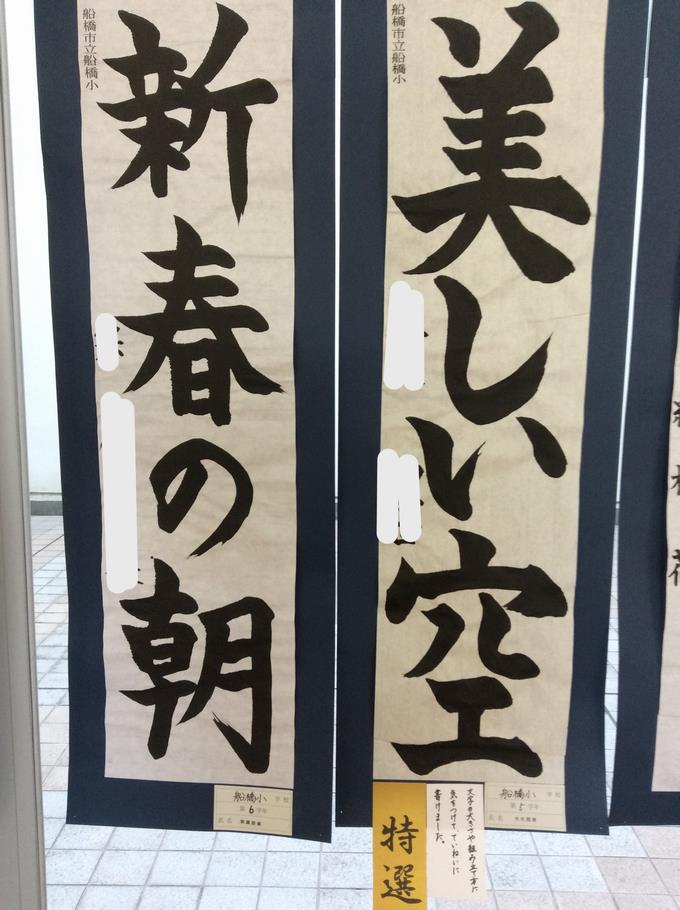 船橋市立船橋小
美しい空
船橋小 学校
第5学年
氏名
文字の大きさや組み立て方に
気をつけて、ていねいに
書けました。
特選
船橋市立船橋小
新春の朝
船橋小 学校
第6学年
氏名